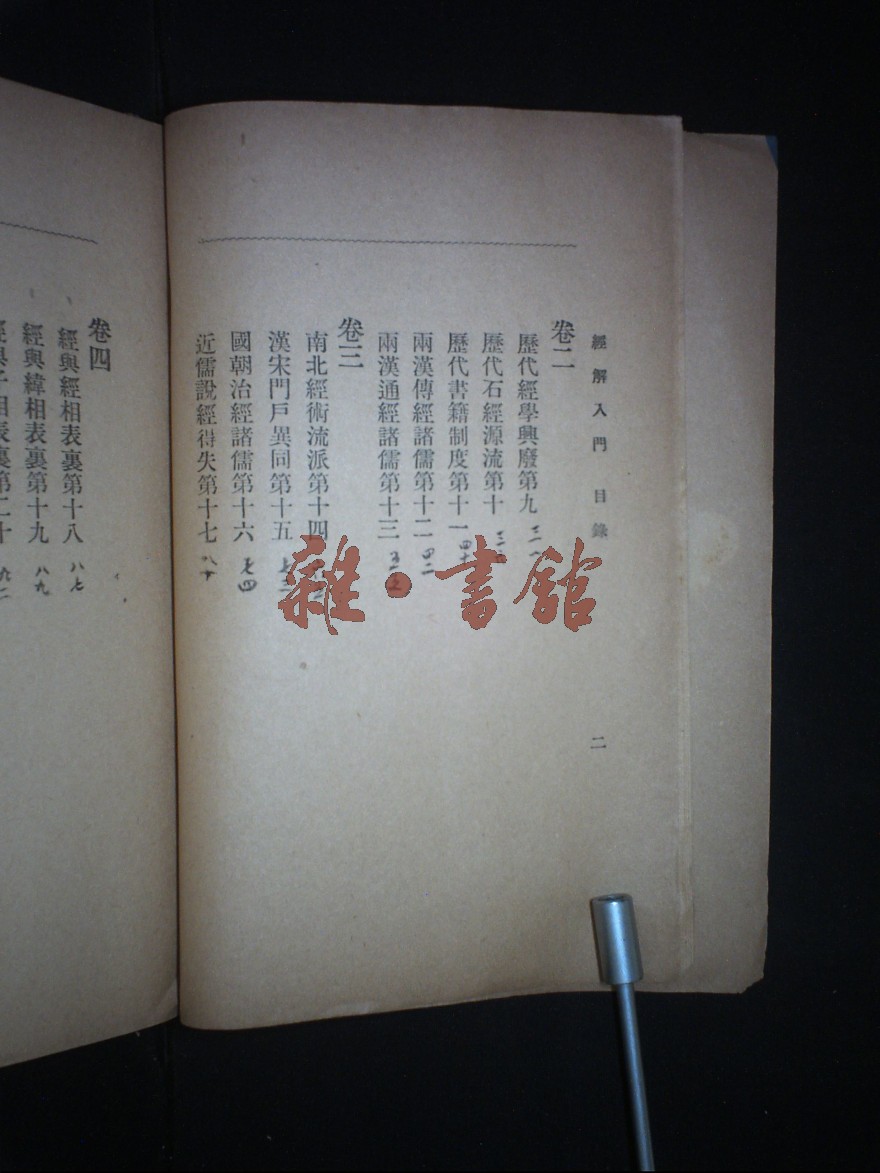 經解入門 目錄 二
卷二
歷代經學興廢第九
歷代石經源流第十
歷代書籍制度第十一 四十
兩漢傳經諸儒第十二 四二
兩漢通經諸儒第十三
卷三
南北經術流派第十四
漢宋門戶異同第十五 七三
國朝治經諸儒第十六 七四
近儒說經得失第十七 八十
卷四
經與經相表裏第十八 八七
經與緯相表裏第十九 八九
經與子相表裏第二十 九二
雜·書館